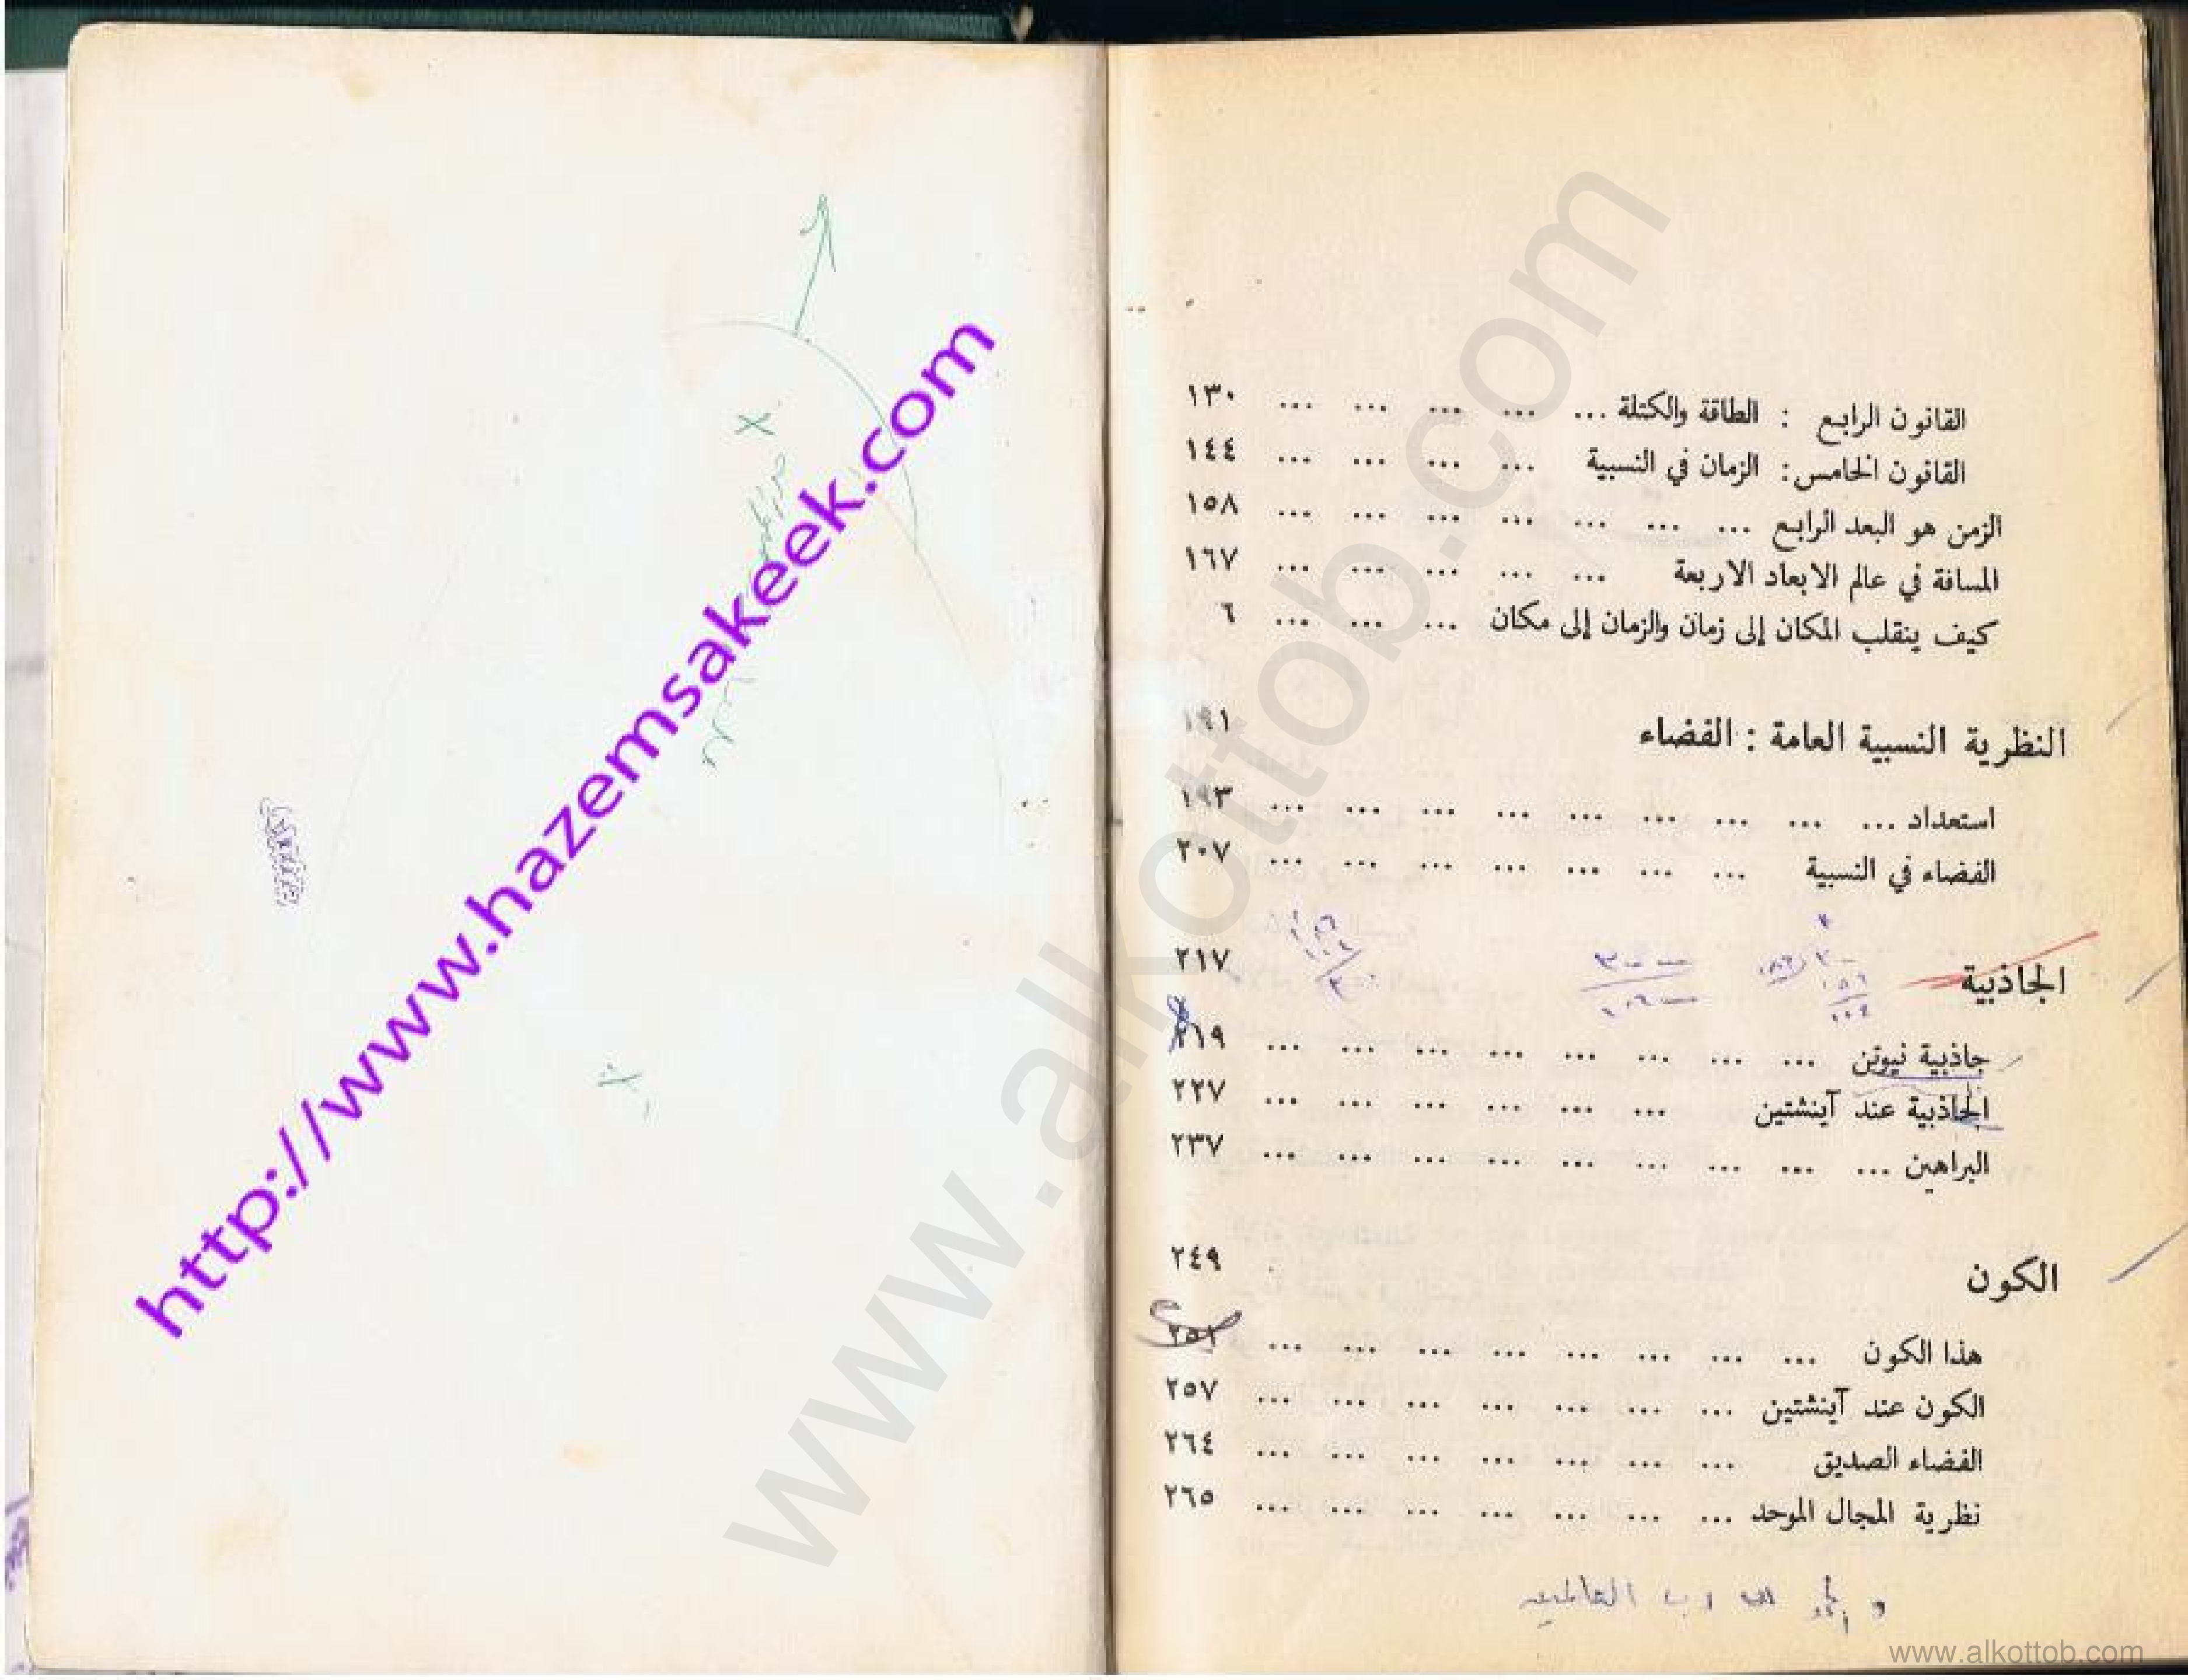 القانون الرابع : الطاقة والكتلة ... ... ... ... ... ١٣٠
القانون الخامس : الزمان في النسبية ... ... ... ... ١٤٤
الزمن هو البعد الرابع ... ... ... ... ... ... ... ١٥٨
المسافة في عالم الابعاد الاربعة ... ... ... ... ... ١٦٧
كيف ينقلب المكان إلى زمان والزمان إلى مكان ... ... ... ٦
النظرية النسبية العامة : الفضاء ١٩١
استعداد ... ... ... ... ... ... ... ... ... ١٩٣
الفضاء في النسبية ... ... ... ... ... ... ... ٢٠٧
الجاذبية ٢١٧
جاذبية نيوتن ... ... ... ... ... ... ... ... ٢١٩
الجاذبية عند آينشتين ... ... ... ... ... ... ٢٢٧
البراهين ... ... ... ... ... ... ... ... ... ٢٣٧
الكون ٢٤٩
هذا الكون ... ... ... ... ... ... ... ... ٢٥١
الكون عند آينشتين ... ... ... ... ... ... ... ٢٥٧
الفضاء الصديق ... ... ... ... ... ... ... ٢٦٤
نظرية المجال الموحد ... ... ... ... ... ... ... ٢٦٥
رب العالمين
http://www.hazemsakeek.com
www.alkottob.com
www.alkottob.com